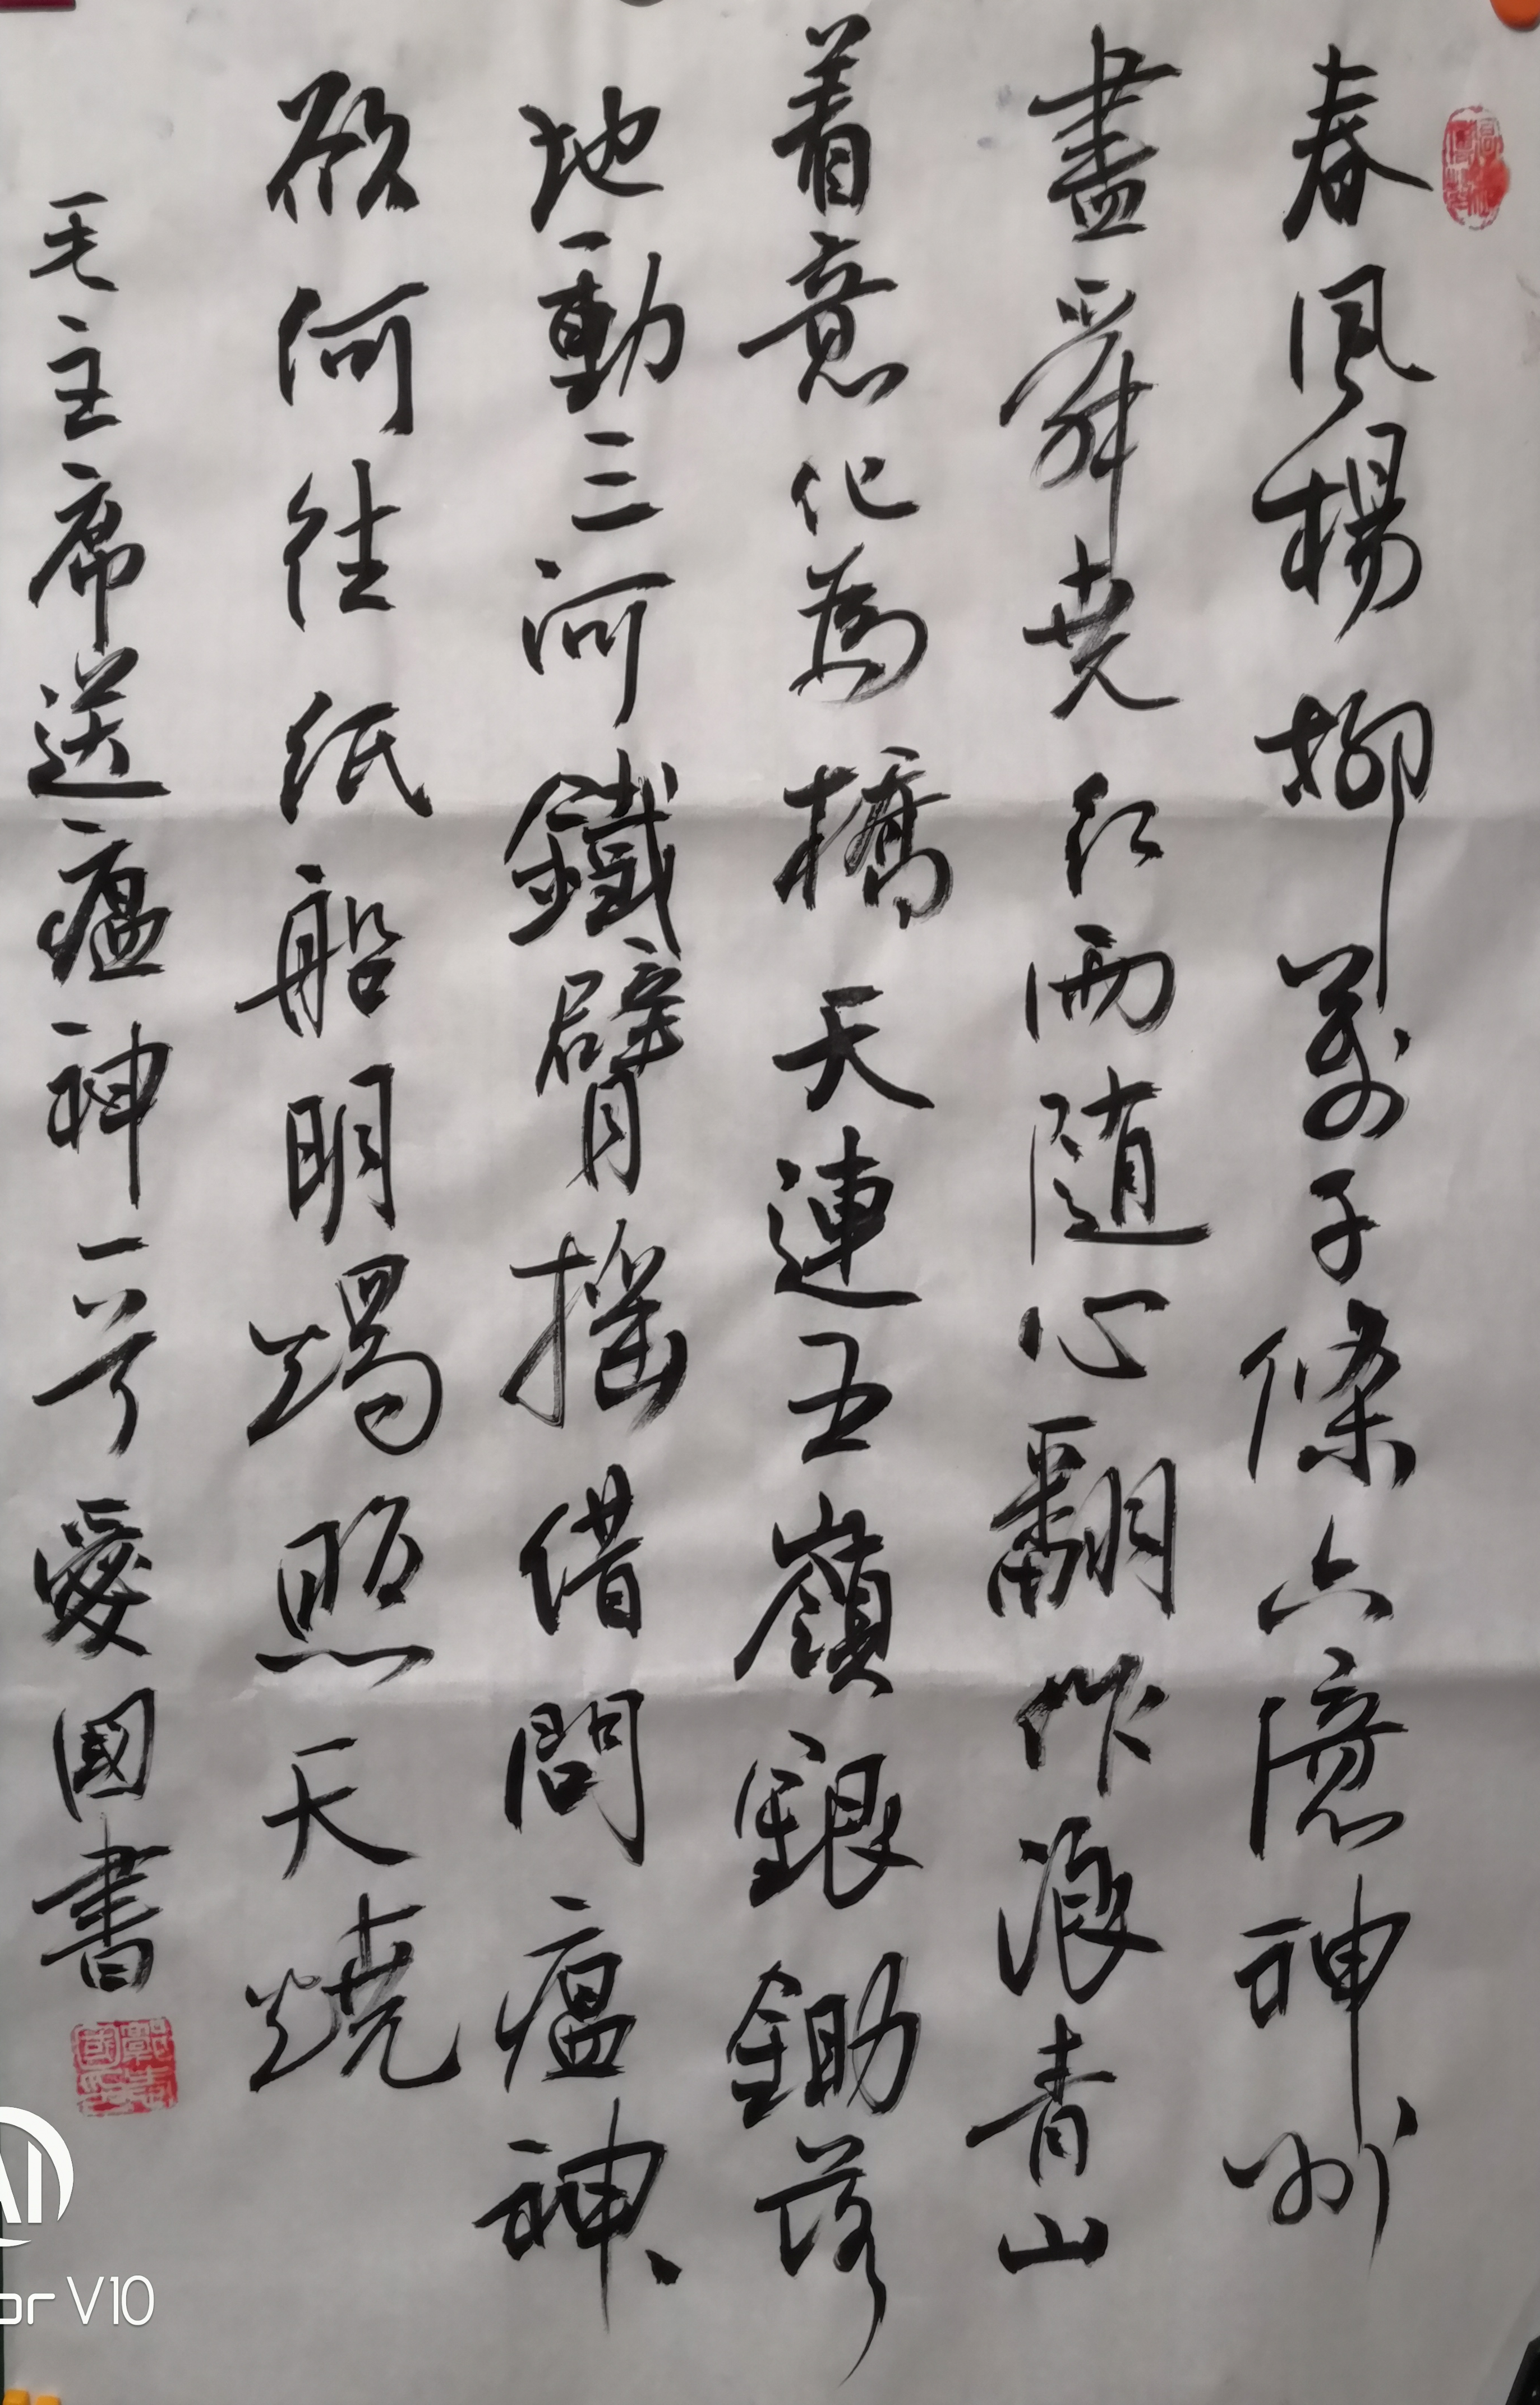 春風楊柳萬千條六億神州
盡舜堯紅雨随心翻作浪青山
着意化為橋天連五嶺銀鋤落
地動三河鐵臂摇借問瘟神
欲何往纸船明燭照天燒
毛主席送瘟神一首愛國書
or V10